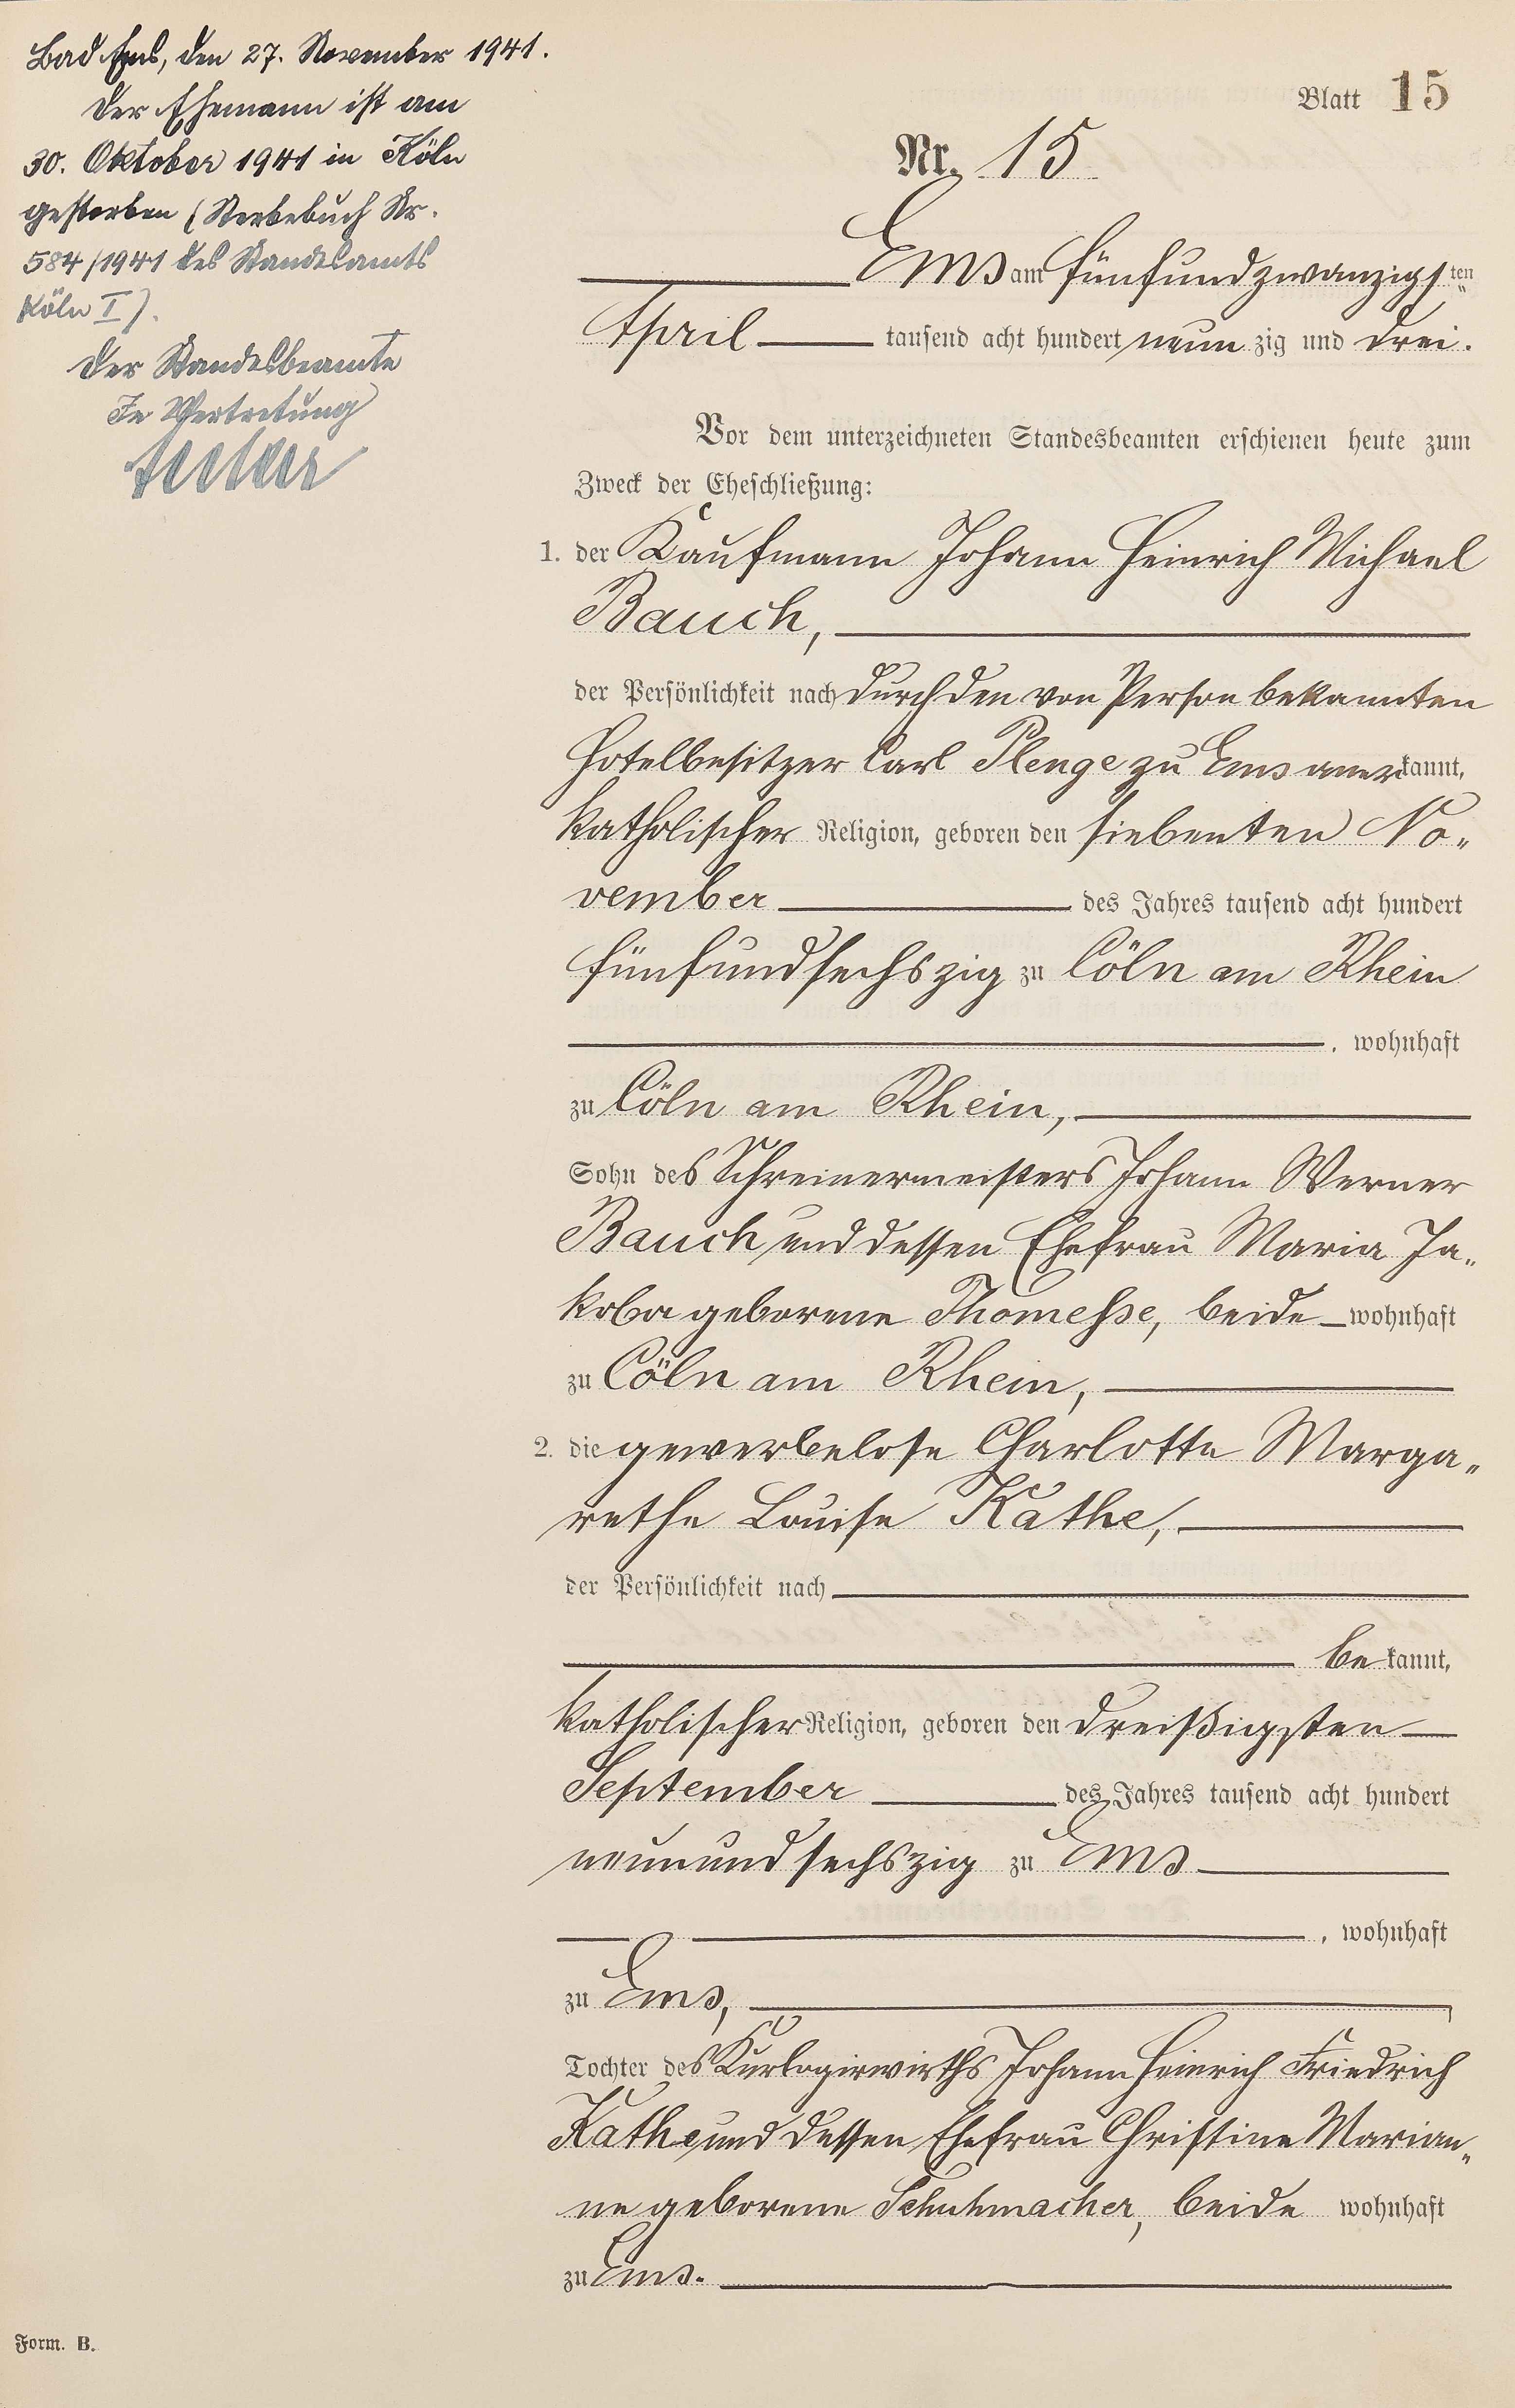 Bad Ems, den 27. November 1941.
Der Ehemann ist am
30. Oktober 1941 in Köln
gestorben (Sterbebuch Nr.
584/1941 des Standesamts
Köln I).
Der Standesbeamte
In Vertretung
Blatt 15
Nr. 15
Ems am fünfundzwanzigsten
April tausend acht hundert neunzig und drei.
Vor dem unterzeichneten Standesbeamten erschienen heute zum
Zweck der Eheschließung:
1. der Kaufmann Johann Heinrich Michael
Bauch,
der Persönlichkeit nach durch den von Person bekannten
Hotelbesitzer Carl Plenge zu Ems anerkannt,
katholischer Religion, geboren den siebenten No-
vember des Jahres tausend acht hundert
fünfundsechszig zu Cöln am Rhein
, wohnhaft
zu Cöln am Rhein,
Sohn des Schreinermeisters Johann Werner
Bauch und dessen Ehefrau Maria Ja-
koba geborene Thomesse, beide wohnhaft
zu Cöln am Rhein,
2. die gewerbelose Charlotte Marga-
rethe Louise Kathe,
der Persönlichkeit nach
bekannt,
katholischer Religion, geboren den dreißigsten
September des Jahres tausend acht hundert
neunundsechszig zu Ems
, wohnhaft
zu Ems,
Tochter des Kurlogirwirths Johann Heinrich Friedrich
Kathe und dessen Ehefrau Christine Marian-
ne geborene Schuhmacher, beide wohnhaft
zu Ems.
Form. B.